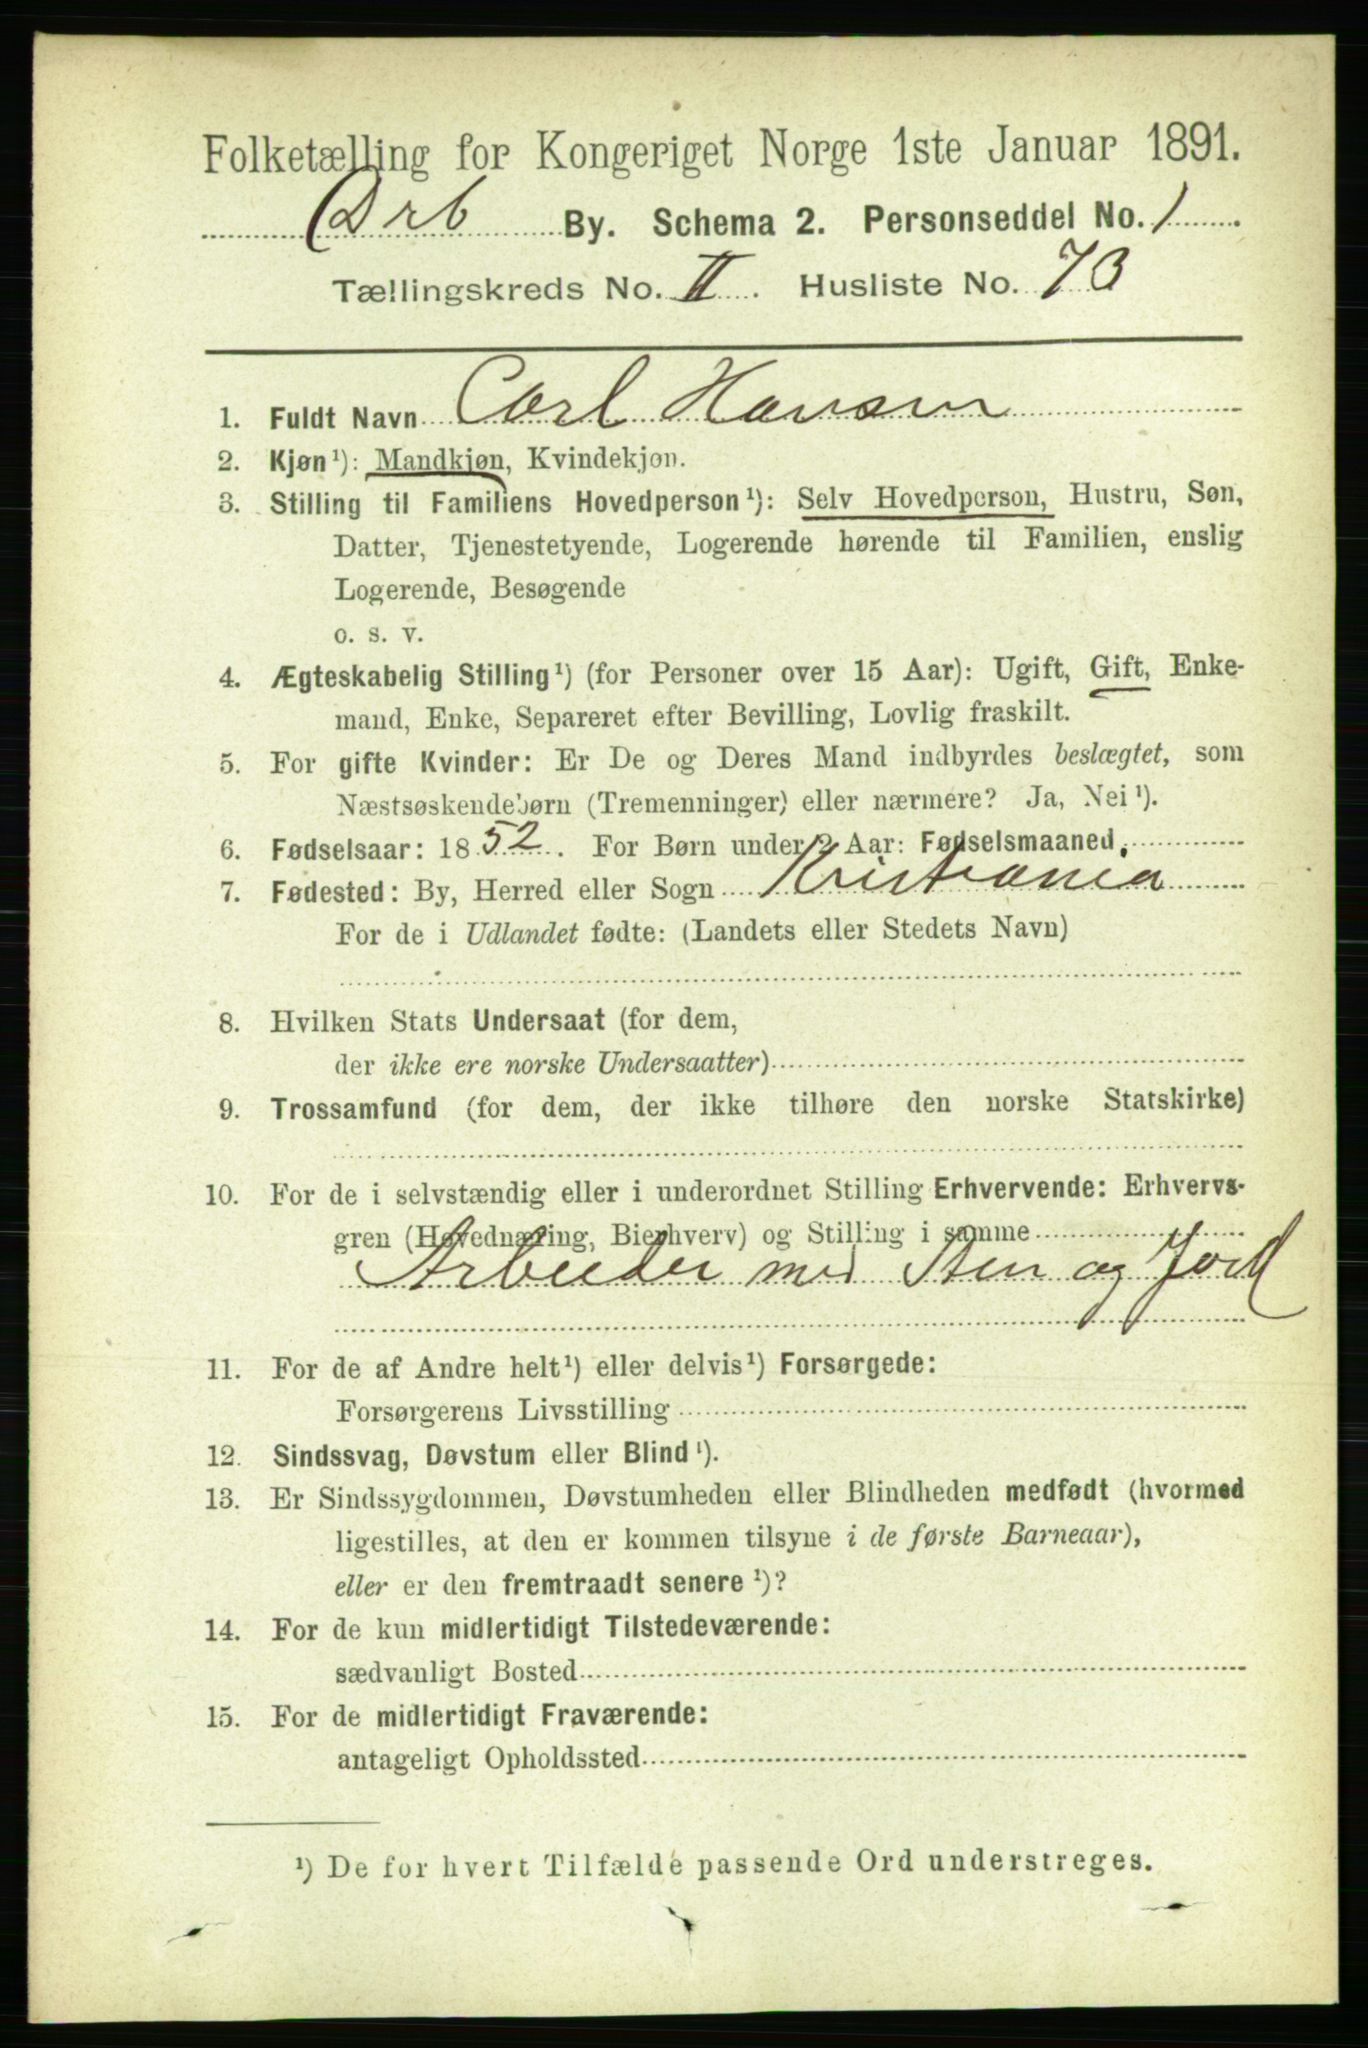 Folketælling for Kongeriget Norge 1ste Januar 1891.
Drb By. Schema 2. Personseddel No. 1
Tællingskreds No. II. Husliste No. 73
1. Fuldt Navn Carl Hansen
2. Kjøn¹): Mandkjøn, Kvindekjøn.
3. Stilling til Familiens Hovedperson¹): Selv Hovedperson, Hustru, Søn,
Datter, Tjenestetyende, Logerende hørende til Familien, enslig
Logerende, Besøgende
o. s. v.
4. Ægteskabelig Stilling¹) (for Personer over 15 Aar): Ugift, Gift, Enke-
mand, Enke, Separeret efter Bevilling, Lovlig fraskilt.
5. For gifte Kvinder: Er De og Deres Mand indbyrdes beslægtet, som
Næstsøskendebørn (Tremenninger) eller nærmere? Ja, Nei¹).
6. Fødselsaar: 1852. For Børn under 2 Aar: Fødselsmaaned.
7. Fødested: By, Herred eller Sogn Kristiania
For de i Udlandet fødte: (Landets eller Stedets Navn)
8. Hvilken Stats Undersaat (for dem,
der ikke ere norske Undersaatter)
9. Trossamfund (for dem, der ikke tilhøre den norske Statskirke)
10. For de i selvstændig eller i underordnet Stilling Erhvervende: Erhvervs-
gren (Hovednæring, Bierhverv) og Stilling i samme
Arbeider med Sten og Jord
11. For de af Andre helt¹) eller delvis¹) Forsørgede:
Forsørgerens Livsstilling
12. Sindssvag, Døvstum eller Blind¹).
13. Er Sindssygdommen, Døvstumheden eller Blindheden medfødt (hvormed
ligestilles, at den er kommen tilsyne i de første Barneaar),
eller er den fremtraadt senere¹)?
14. For de kun midlertidigt Tilstedeværende:
sædvanligt Bosted
15. For de midlertidigt Fraværende:
antageligt Opholdssted
¹) De for hvert Tilfælde passende Ord understreges.